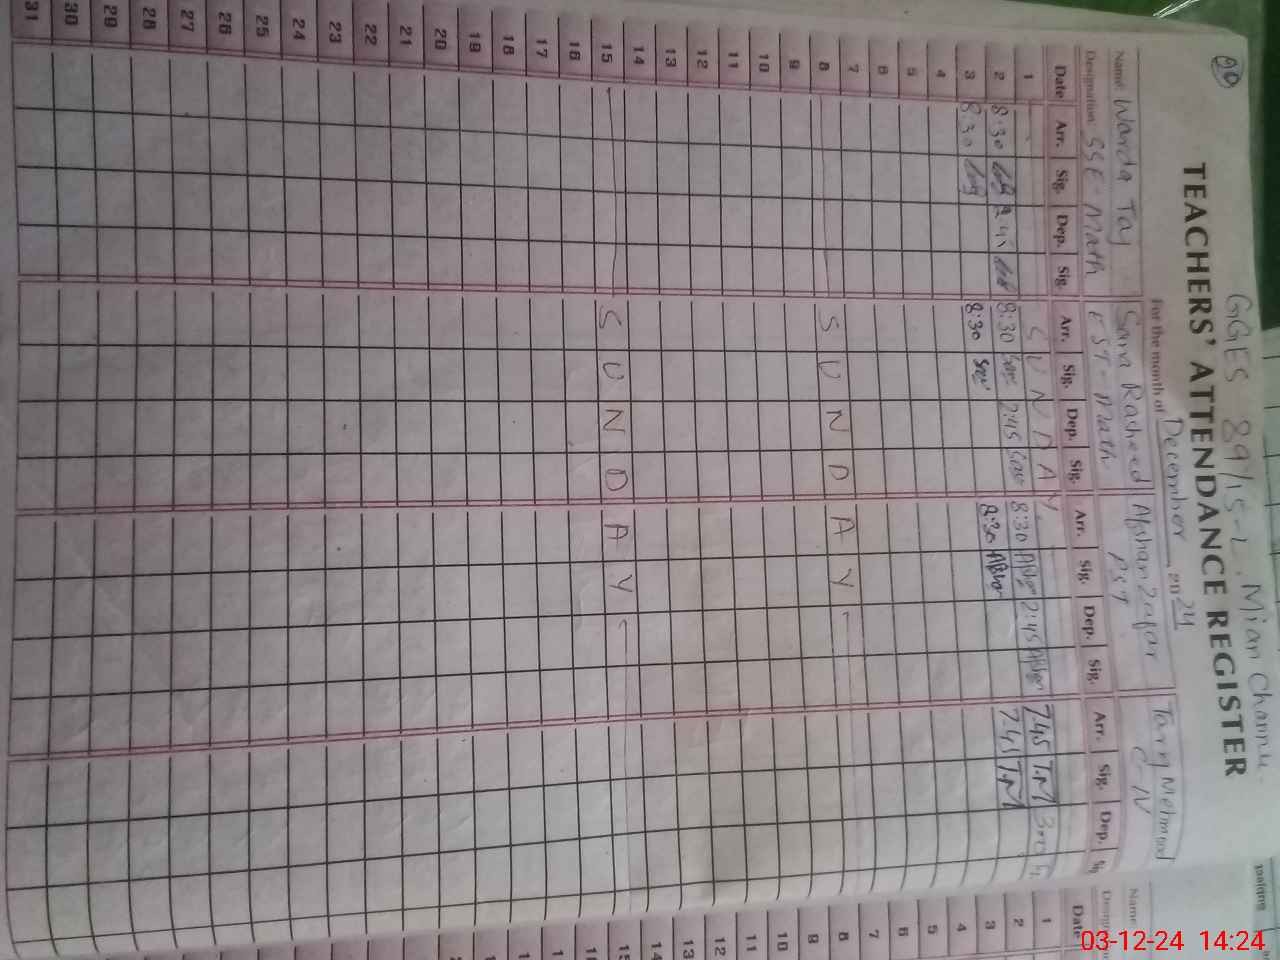 20
GGES 89/15-L, Mian Channu.
TEACHERS' ATTENDANCE REGISTER
For the month of December 2024
Name Warda Taj Sana Rasheed Afshan Zafar Tariq Mehmood
Designation SSE-Math EST-Math PST C-IV
Date Arr. Sig. Dep. Sig Arr. Sig. Dep. Sig. Arr. Sig. Dep. Sig. Arr. Sig. Dep. Sig
1 SUNDAY
2 8:30 2:45 8:30 2:45 8:30 2:45 7:45 T.M
3 8:30 8:30 8:30 7:45 T.M
4
5
6
7
8 SUNDAY
9
10
11
12
13
14
15 SUNDAY
16
17
18
19
20
21
22
23
24
25
26
27
28
29
30
31
Name
Date
1
2
3
4
5
6
7
8
9
10
11
12
13
14
15
Subject
03-12-24 14:24